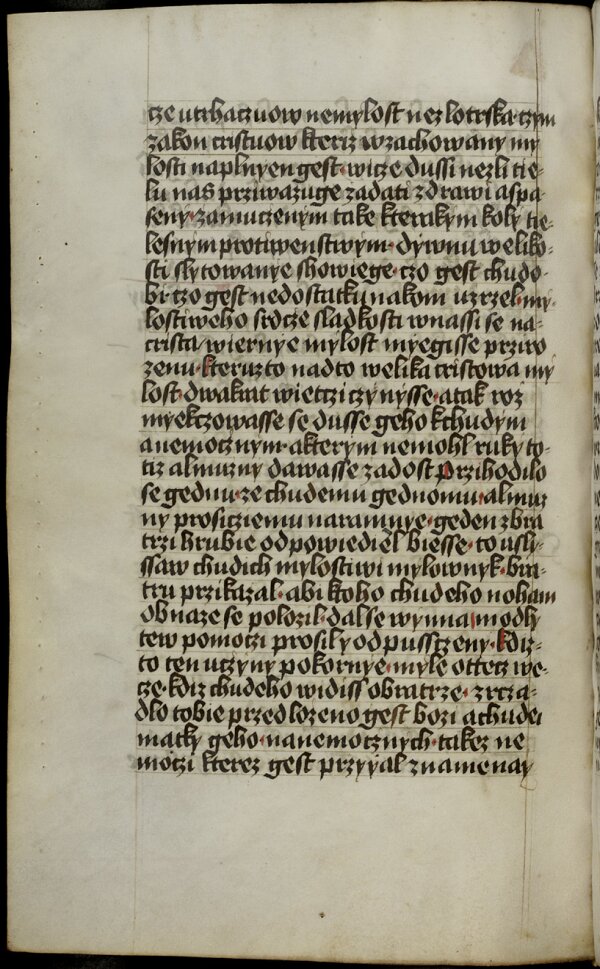 tze utrhaczuow nemylost nez lotrska tzym
zakon cristuow kteriz w zachowany my
losti naplnyen gest· wicze dussi nezli tie-
lu nas prziwazuge zadati zdrawi a spa-
seny· zamuczenym take kterakym koly tie-
lesnym protiwenstwym· dywnu weliko-
sti slytowanye showiege· czo gest chudo-
bi· czo gest nedostatku nakom uzrzel· my-
lostiweho srdcze sladkosti wnassi se na-
crista/ wiernye mylost myegisse prziro
zenu· kteruzto nadto welika cristowa my
lost· dwakrat wietczi czynysse· a tak roz
myekczowasse se dusse geho k chudym
a nemocznym· a kterym nemohl ruky to-
tiz almuzny dawasse zadost Przihodilo
se gednu· ze chudemu gednomu· almuz
ny prosicziemu naramnye· geden z bra
trzi hrubie odpowiediel biesse· to usly-
ssaw chudich mylostiwi mylownyk· bra-
tru przikazal· abi k toho chudeho noham
obnaze se polozil· dal se wynna/ modly
tew pomoczi prosil y odpussczeny· kdiz-
to ten uczyny pokornye· myle ottecz we-
cze· kdiz chudeho widiss o bratrze· zrcza-
dlo tobie przedlozeno gest bozi a chude
matky geho· na nemocznych· takez ne
moczi kterez gest przyyal znamenay